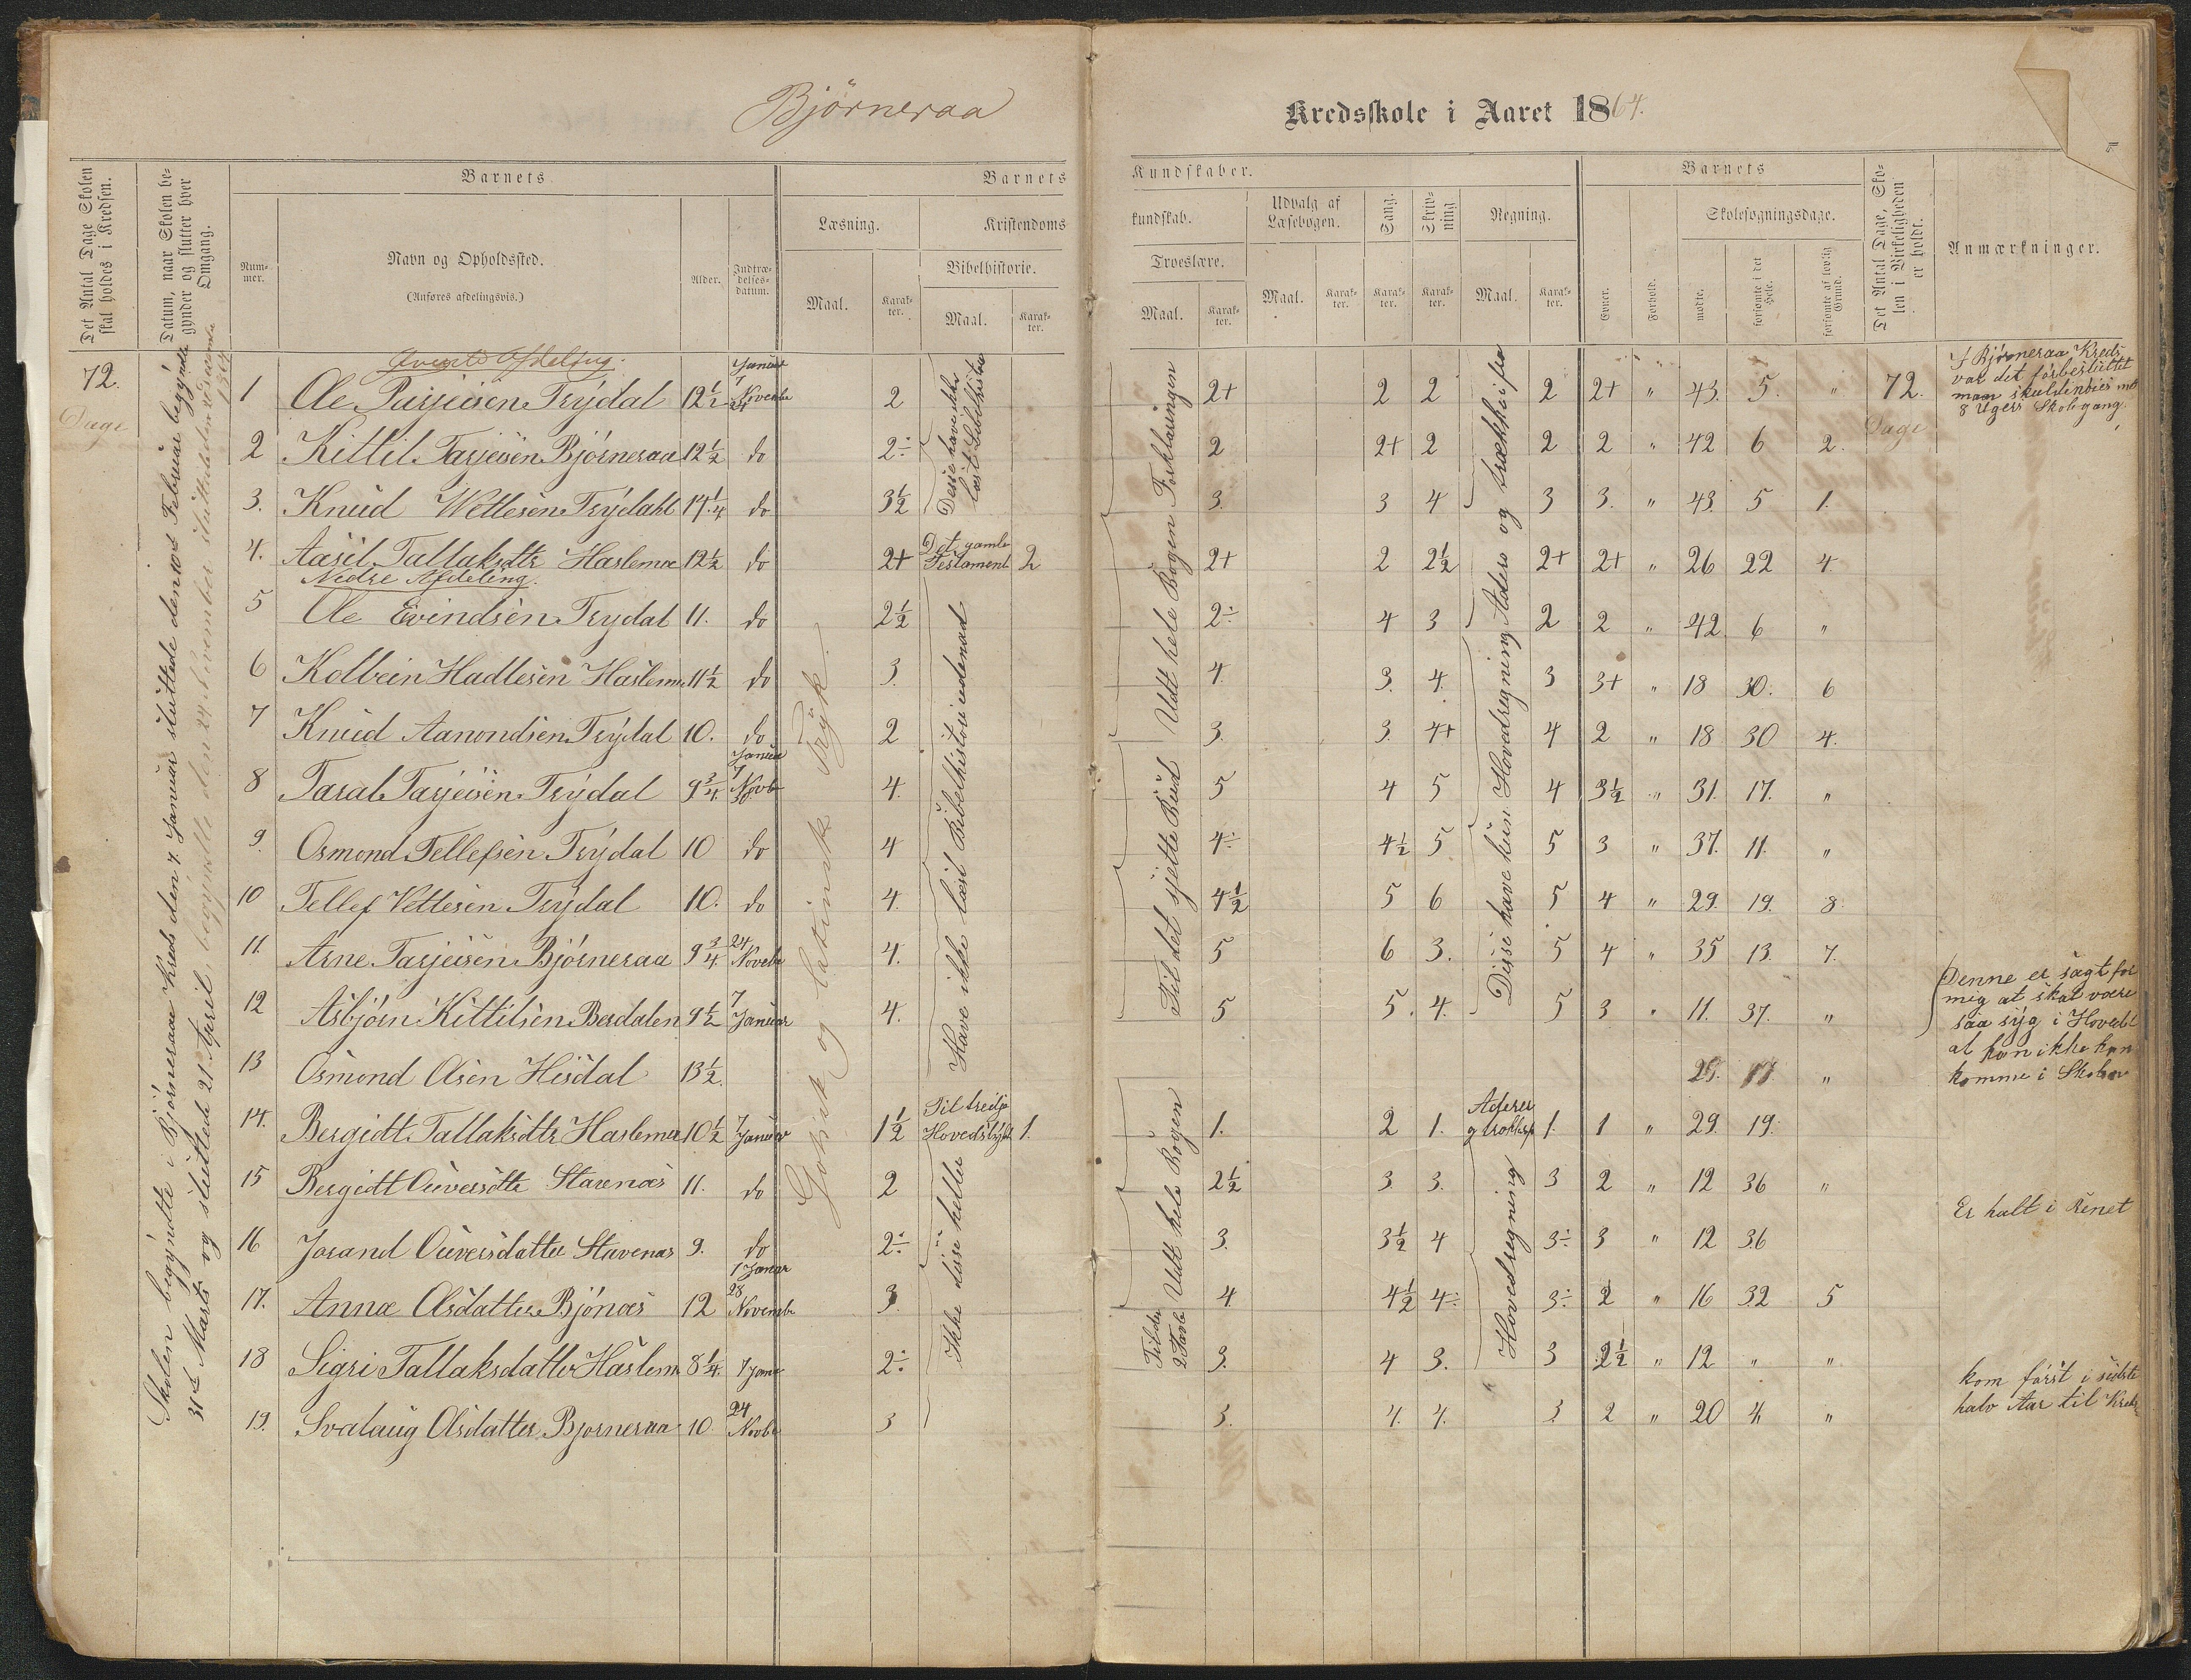 Bjørneraa
Kredsskole i Aaret 1864.
Det Antal Dage Skolen skal holdes i Kredsen.
Datum, naar Skolen begynder og slutter hver Omgang.
Barnets
Nummer.
Navn og Opholdssted.
(Anføres afdelingsvis.)
Alder.
Indtrædelsesdatum.
Barnets
Læsning.
Maal.
Karakter.
Kristendoms
Bibelhistorie.
Maal.
Karakter.
Kundskaber.
kundskab.
Troeslære.
Maal.
Karakter.
Udvalg af Læsebogen.
Maal.
Karakter.
Sang.
Karakter.
Skrivning
Karakter.
Regning.
Maal.
Karakter.
Barnets
Evner.
Forhold.
Skolesøgningsdage.
mødte.
forsømte i det Hele.
forsømte af lovlig Grund.
Det Antal Dage, Skolen i Virkeligheden er holdt.
Anmærkninger.
72.
Dage
Skolen begyndte i Bjørneraae Kreds den 7 Januar sluttede den Februar begyndte
31te Marts og sluttede 21 April, begyndte den 24 November sluttede den
1864
Øverste Afdeling.
1 Ole Tarjeisen Trydal 12½ Januar 7 Novembe 24 2 2+ 2 2 2 2+ " 43. 5. " 72.
Dage
2 Kittil Tarjeisen Bjørneraa 12½ do 2÷ 2 2+ 2 2 2 " 42 6 2.
3. Knud Wettesen Trydahl 14¼ do 3½ 3. 3 4 3 3. " 43. 5 1.
4. Aasil Tallaksdtr Haslemoe 12½ do 2+ Det gamle Testament 2 2+ 2 2½ 2+ 2+ " 26 22 4
Nedre Afdeling.
5 Ole Evindsen Trydal 11. do 2½ 2÷ 4 3 2 2 " 42 6 "
6 Kolbein Hadlesen Haslemo 11½ do 3. 4. 3. 4. 3 3+ " 18 30. 6
7 Knud Aanondsen Trydal 10. do 2 3. 3. 4+ 4 2 " 18 30 4.
8 Taral Tarjeisen Trydal 9¾ Januar 7 Novb 4. 5 4 5 4 3½ " 31. 17. "
9. Osmond Tellefsen Trydal 10 do 4 4÷ 4½ 5 5 3 " 37. 11. "
10 Tellef Vettesen Trydal 10. do 4. 4½ 5 6 5 4 " 29. 19. 8.
11. Arne Tarjeisen Bjørneraa 9¾ 24 Novebe 4. 5 6 3. 5 4 " 35 13. 7.
12 Asbjørn Kittilsen Berdalen 9½ 7 Januar 4. 5 5. 4. 5 3 " 11. 37. "
13 Osmond Olsen Hisdal 13½. 29. "
14. Bergidt Tallaksdtr Haslemoe 10½ 7 Januar 1½ Til tredje Hovedstykke 1. 1. 2 1. 1. 1 " 29. 19.
15 Bergidt Oüversdtr Stavenæs 11. do 2 2½ 3 3. 3 2 " 12 36 "
16 Jorand Oüversdatter Stavenæs 9. do 2÷ 3. 3½ 4 3÷ 3 " 12 36
17. Anna Olsdatter Bjönæs 12 7 Januar 28 Novembe 3. 4. 4½ 4÷ 3÷ 2 " 16 32 5
18 Sigri Tallaksdatter Haslem 8¼. 7 Janr 2÷ 3. 4 3. 3 2½ " 12 " "
19. Svalaug Olsdatter Bjorneraa 10 24 Novbr 3 3. 4. 4. 3 2 " 20 4 "
Gotisk og latinsk Tryk.
Desse have ikke læst Bibelhistorie
Have ikke læst Bibelhistori udenad
Ikke disse heller
Udt hele Bogen Forklaringen
Til det sjette Bud
Udt hele Bogen
Til den 2 Tavle
Disse have kun Hovedregning Aders og trækker ifra
Hovedregning
I Bjørneraa Kreds
var det forbesluttet
man skuldenøies met
8 Ugers Skolegang.
Denne er sagt for
mig at skal være
saa syg i Hovedet
at han ikke kan
komme i Skolen
Er halt i Benet
kom først i sidste
halv Aar til Kreds